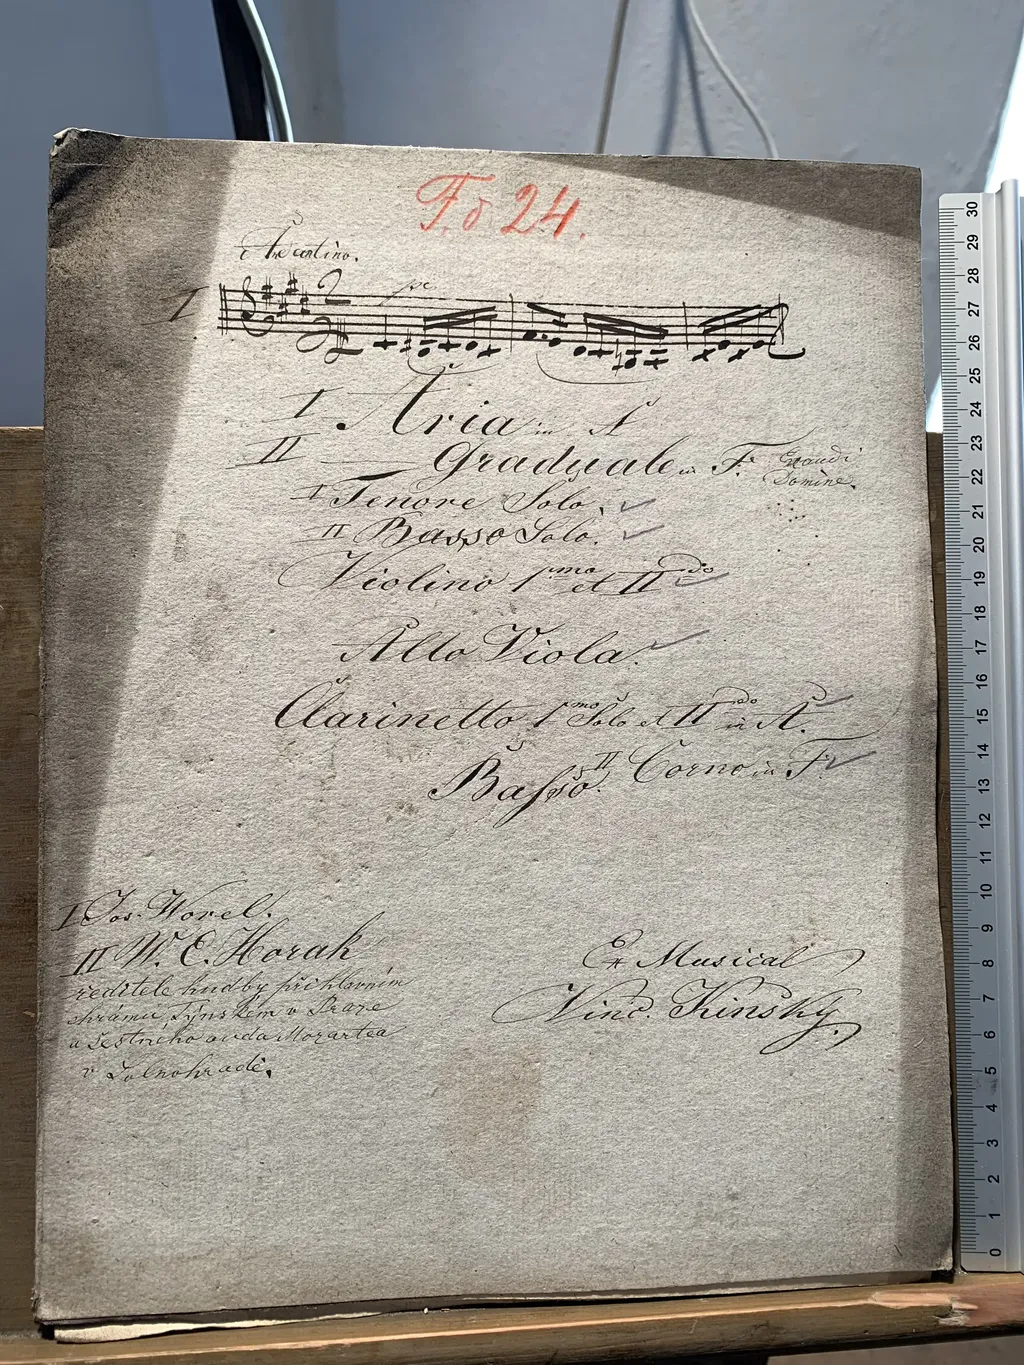 F. d 24.
Andantino.
I
I Aria in A
II Graduale in F. Exaudi
Domine.
I Tenore Solo.
II Basso Solo.
Violino 1mo et IIdo
Alto Viola.
Clarinetto 1mo Solo et IIdo in A.
II Corno in F.
Basso.
I Jos. Worel.
II W. E. Horak
ředitele hudby při hlavním
chrámu Týnském v Praze
a čestného auda Mozartea
v Solnohradě.
Ex Musical
Vinc. Kinsky.
30
29
28
27
26
25
24
23
22
21
20
19
18
17
16
15
14
13
12
11
10
9
8
7
6
5
4
3
2
1
0